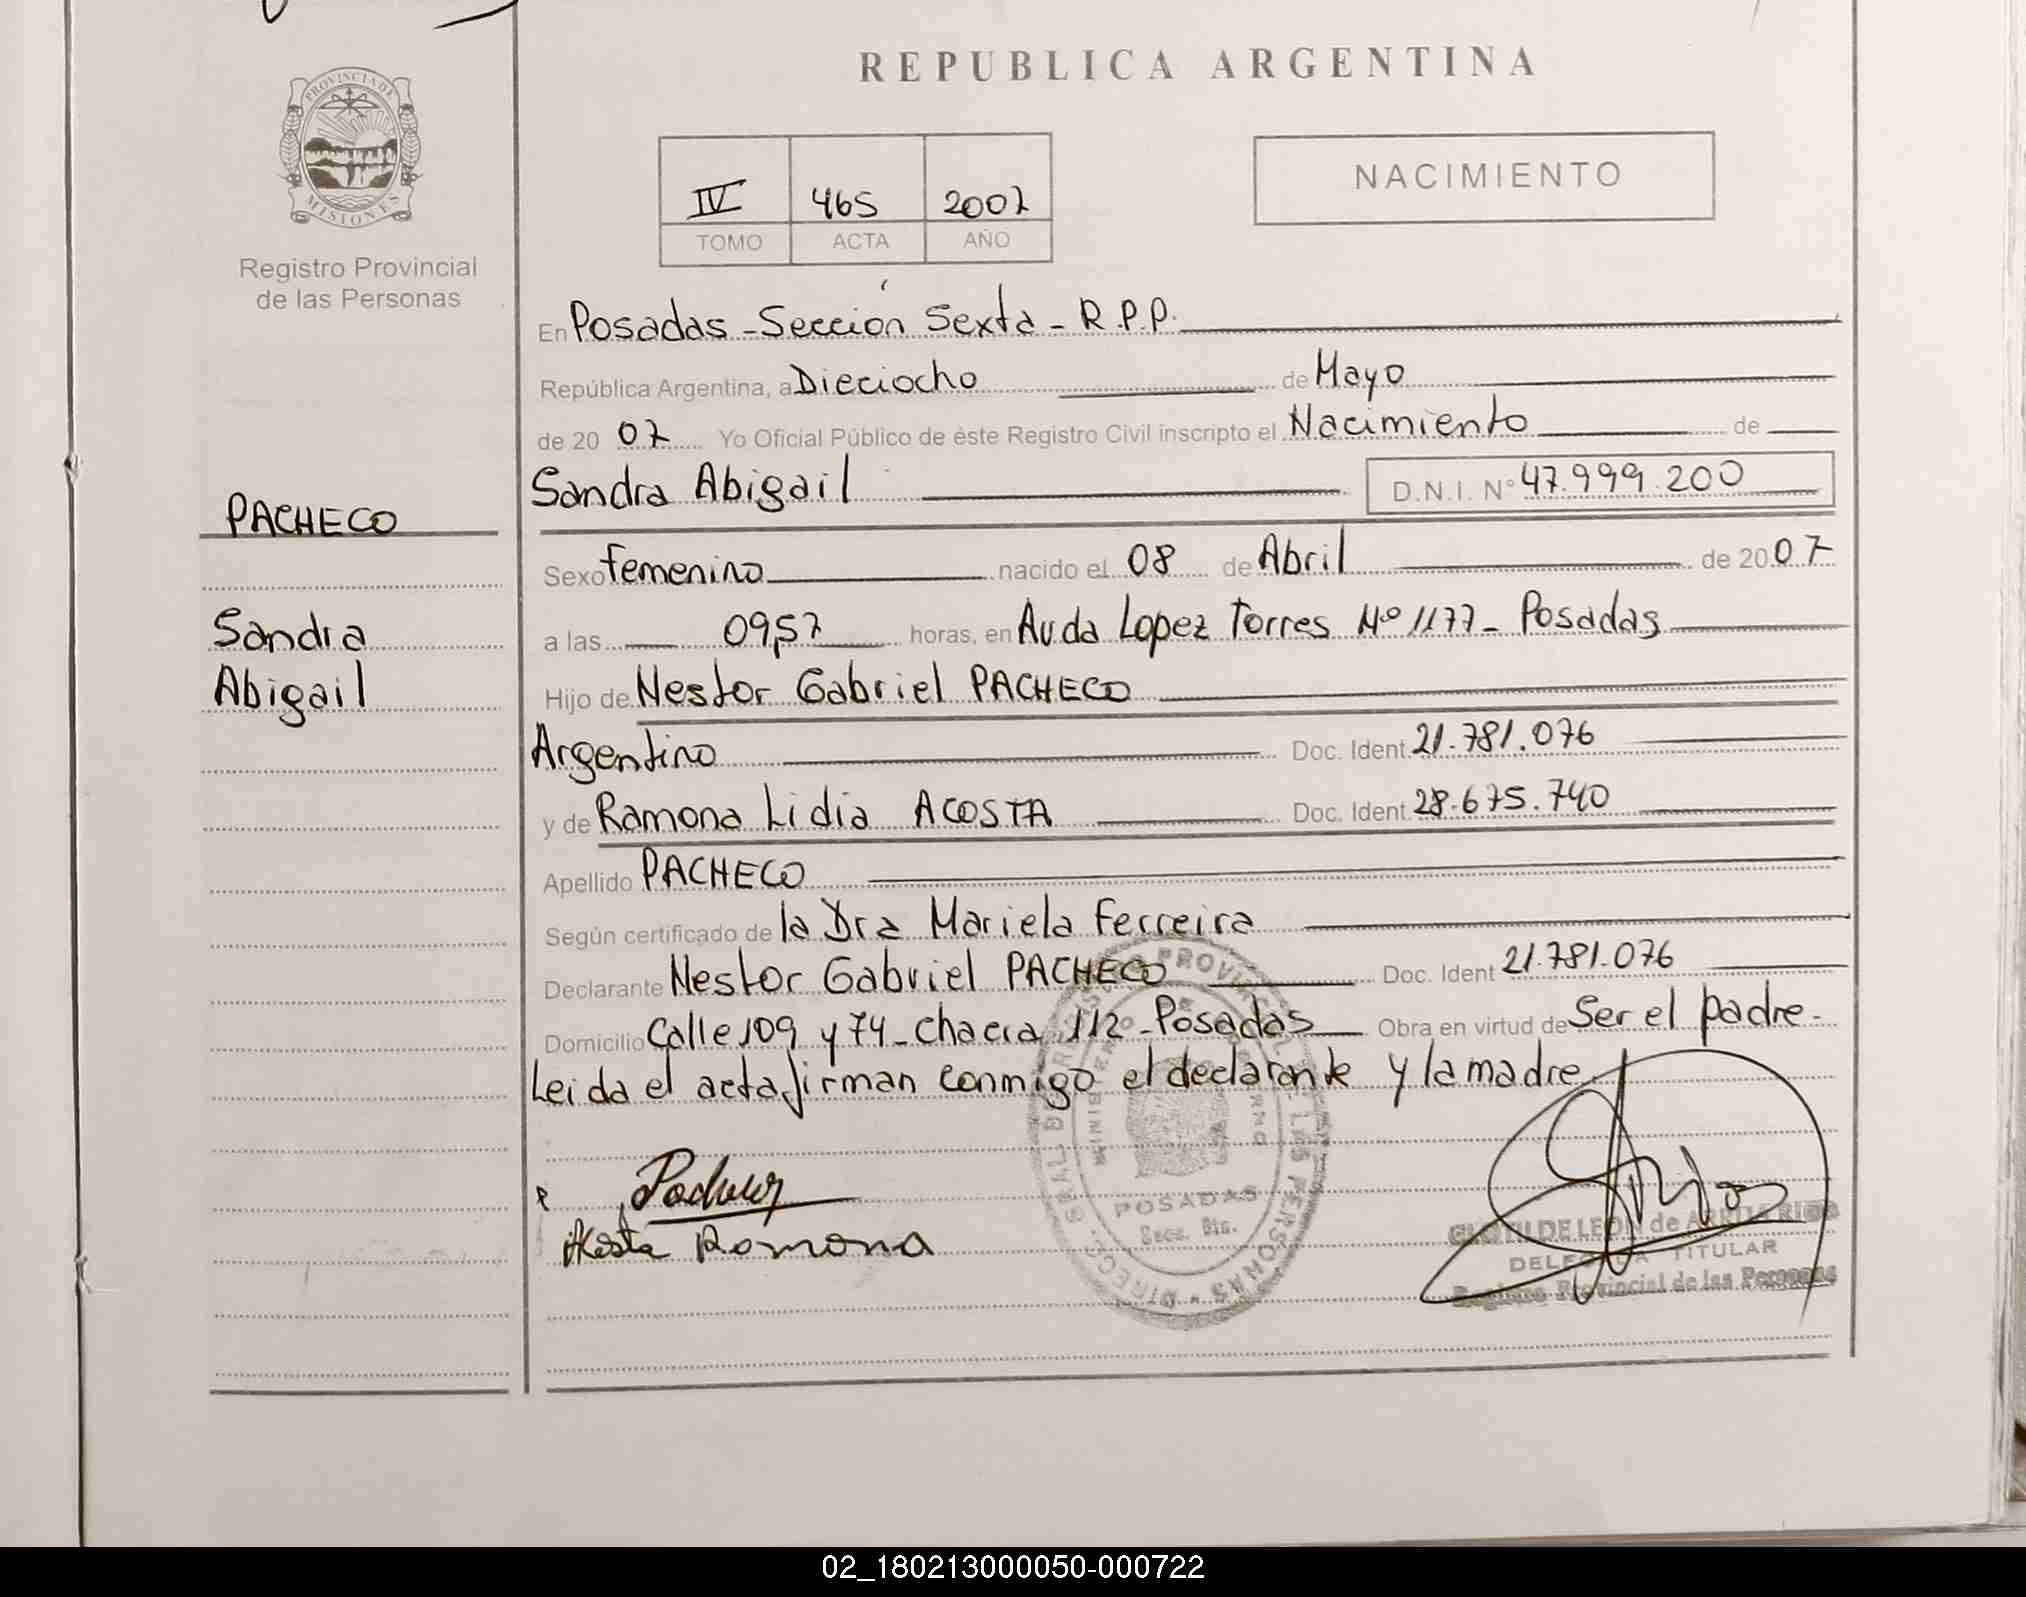 REPUBLICA ARGENTINA
PROVINCIA DE
MISIONES
Registro Provincial
de las Personas
IV 465 2007
TOMO ACTA AÑO
NACIMIENTO
PACHECO
Sandra
Abigail
En Posadas - Sección Sexta - R.P.P.
República Argentina, a Dieciocho de Mayo
de 20 07 Yo Oficial Público de éste Registro Civil inscripto el Nacimiento de
Sandra Abigail D.N.I. Nº 47.999.200
Sexo femenino nacido el 08 de Abril de 20 07
a las 09,57 horas, en Avda Lopez Torres Nº 1177 - Posadas
Hijo de Nestor Gabriel PACHECO
Argentino Doc. Ident. 21.781.076
y de Ramona Lidia ACOSTA Doc. Ident. 28.675.740
Apellido PACHECO
Según certificado de la Dra Mariela Ferreira
Declarante Nestor Gabriel PACHECO Doc. Ident 21.781.076
Domicilio Calle 109 y 74 - Chacra 112 - Posadas Obra en virtud de Ser el padre -
Leida el acta firman conmigo el declarante y la madre
Acosta Romona
POSADAS
Secc.
DELEGADA TITULAR
Registro Provincial de las Personas
02_180213000050-000722